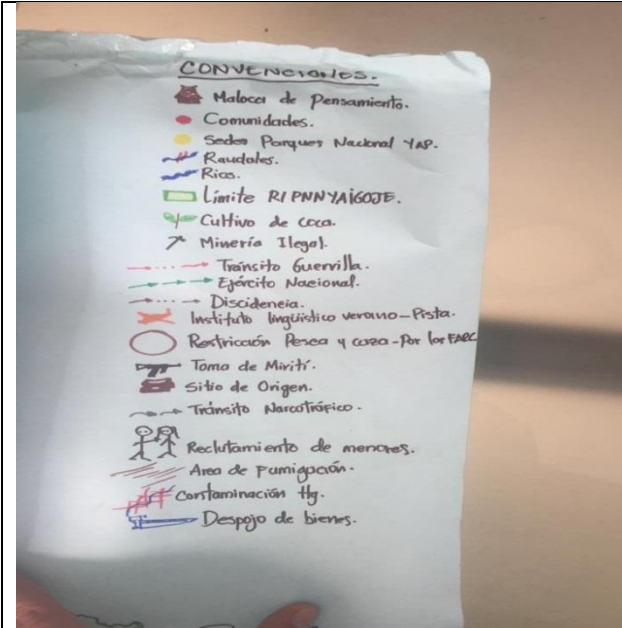 CONVENCIONES.
Maloca de Pensamiento.
Comunidades.
Sedes Parques Nacional YAP.
Raudales.
Rios.
Límite RI PNNYAIGOJE.
Cultivo de coca.
Minería Ilegal.
Tránsito Guerrilla.
Ejército Nacional.
Discidencia.
Instituto lingüístico verano-Pista.
Restricción Pesca y caza-Por las FARC
Toma de Mirití.
Sitio de Origen.
Tránsito Narcotráfico.
Reclutamiento de menores.
Area de Fumigación.
Contaminación Hg.
Despojo de bienes.